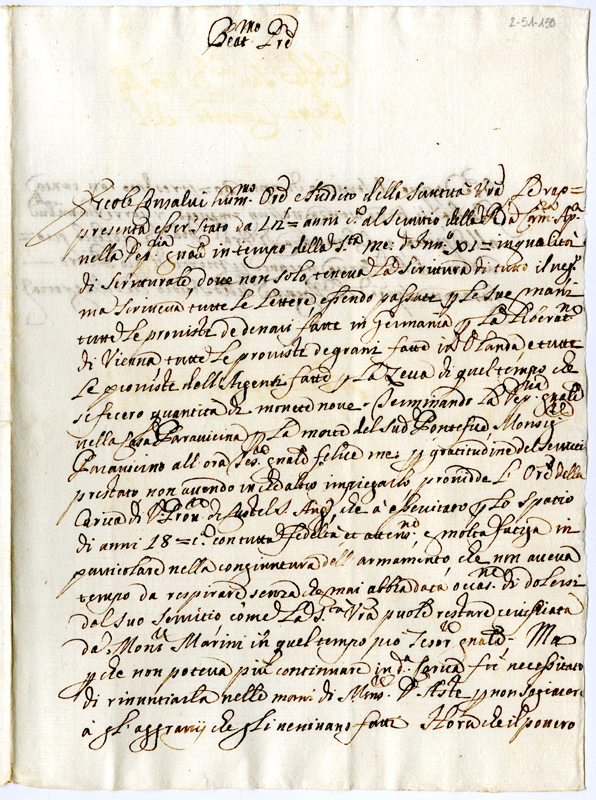 2-51-158
Beat.mo Pre
Ercole Consalvi hum.mo Ore e suddito della Santità Vra Le rap=
presenta esser stato da 12= anni c.a al servitio della R.da Cam.a Ap.
nella Tes.ria gnale in tempo della S.ta me: d'Inn.o XI= in qualità
di scritturale, dove non solo teneva la scrittura di tutto il neg.o
ma scriveva tutte le lettere essendo passate p le sue mani
tutte le proviste de denari fatte in Germania p la liberat.ne
di Vienna tutte le proviste de grani fatte in Olanda e tutte
le proviste delli Argenti fatte p la Zecca di quel tempo che
si fecero quantità di monete nove. Terminando la Tes.ria gnale
nella Casa Paravicina p la morte del Sud. Pontefice, Monsig.
Paravicino all'ora Tes. gnale felice me: p gratitudine del servitio
prestato non avendo in che altro impiegarlo providde l'Ore della
Carica di di Castel S. Ang. che à esercitato p lo spatio
di anni 18= c.a con tutta fedeltà et attenne, e molta fatiga in
particolare nella congiuntura dell'armamento che non aveva
tempo da respirare senza che mai abbia data occas.ne di dolersi
del suo servitio come la S.ta Vra puole restare accertata
da Mons. Marini in quel tempo pro Tesor. gnale. Ma
p che non poteva più continuare in d.a Carica fù necessitato
di rinuntiarla nelle mani di Mons. d'Aste p non sogiacere
à gl'aggravij che gli venivano fatti Hora che il povero